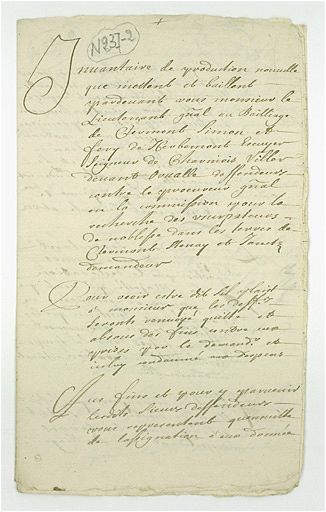 N237-2
Inuantaire de production nouuelle
que mettent et baillent
pardeuant vous monsieur le
Lieutenant gñal au Bailliage
de Clermont Simon et
fery de Herbemont escuyer
Seigneur de Charmois Villers
deuant Orualle deffendeurs
contre le procureur gñal
en la commission pour la
recherche des vsurpateurs
de noblesse dans les terres de
Clermont Stenay et
demandeur
Pour veoir estre dit sil plaist
a monsieur que les deffrs
seront renuoyé quitte et
absous des fins contre
prises par le demandr et
iceluy condamné aux despens
Aux fins et pour y paruenir
lesdits sieurs deffendeurs
representent
de lassignation a eux donnée